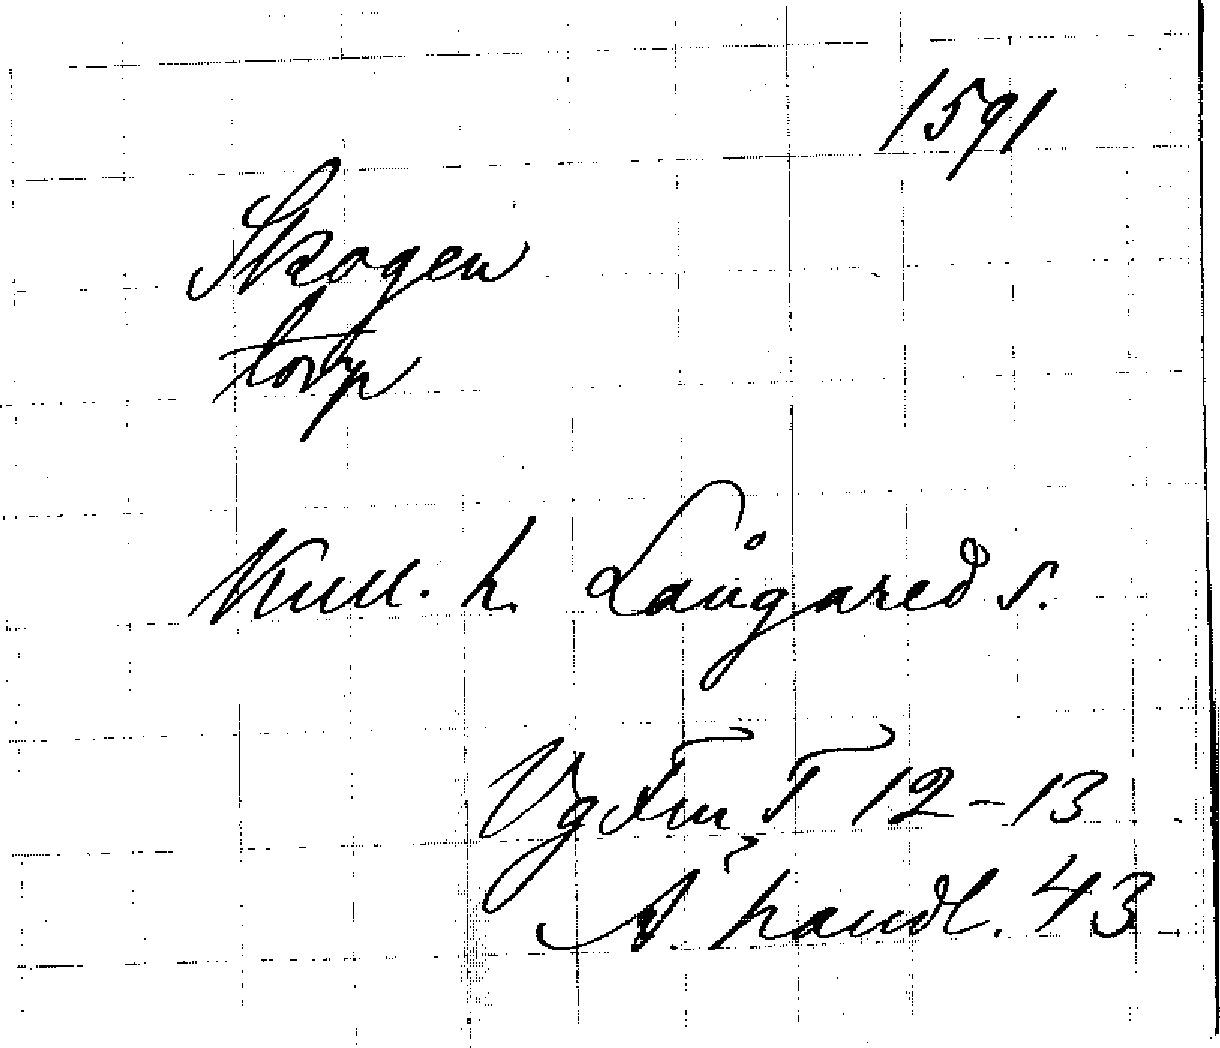 1591
Skogen
torp
Kull. h. Långared s.
Vg Fm T 12-13
A. handl. 43